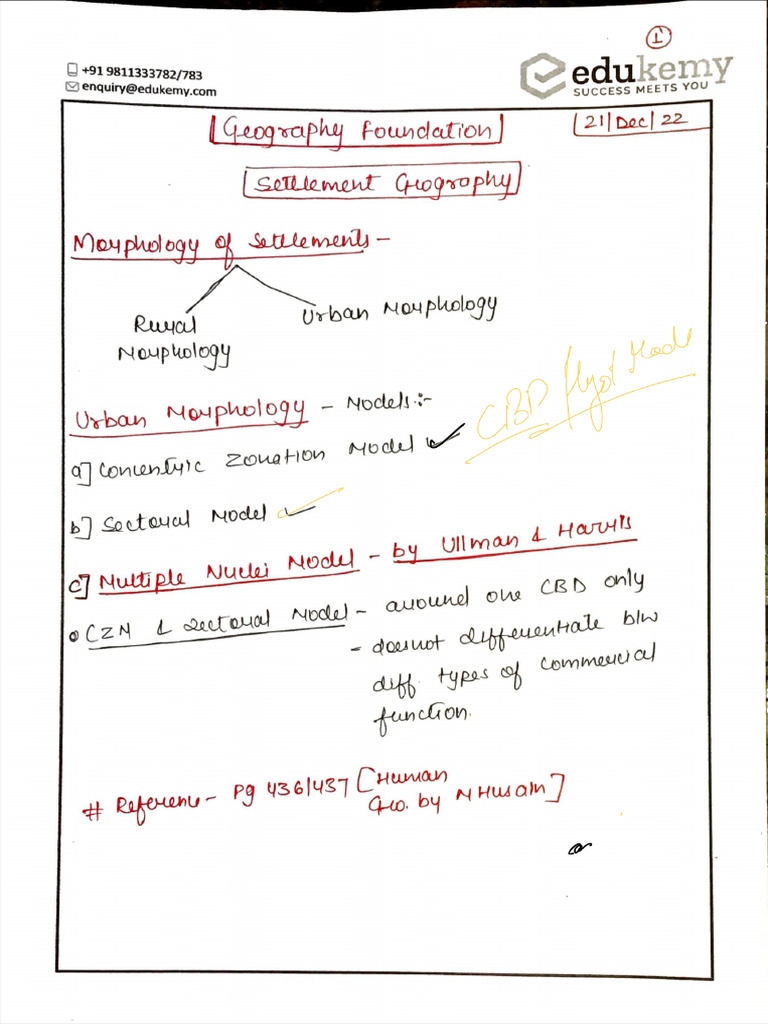 1
+91 9811333782/783
enquiry@edukemy.com
edukemy
SUCCESS MEETS YOU
Geography Foundation
21/Dec/22
Settlement Geography
Morphology of Settlements -
Rural
Morphology
Urban Morphology
Urban Morphology - Models:-
CBD
a] Concentric Zonation Model
b] Sectoral Model
c] Multiple Nuclei Model - by Ullman & Harris
CZM & Sectoral Model - around one CBD only
- doesnot differentiate b/w
diff. types of commercial
function.
# Reference - Pg 436/437 [Human
Geo. by M Husain]